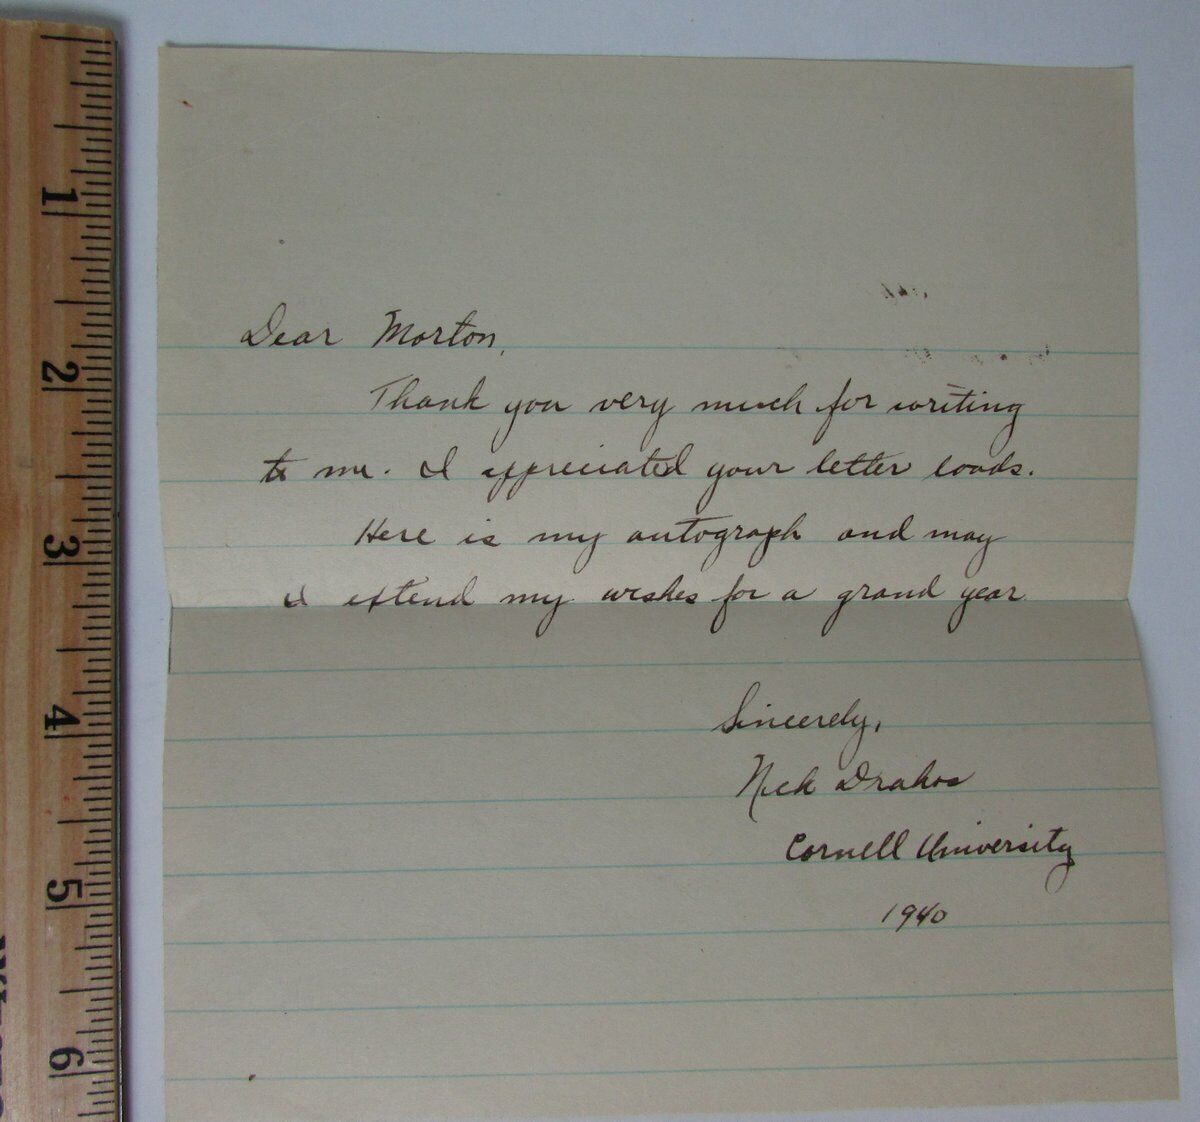 Dear Morton,
Thank you very much for writing
to me. I appreciated your letter loads.
Here is my autograph and may
I extend my wishes for a grand year
Sincerely,
Nick Drahos
Cornell University
1940
1
2
3
4
5
6